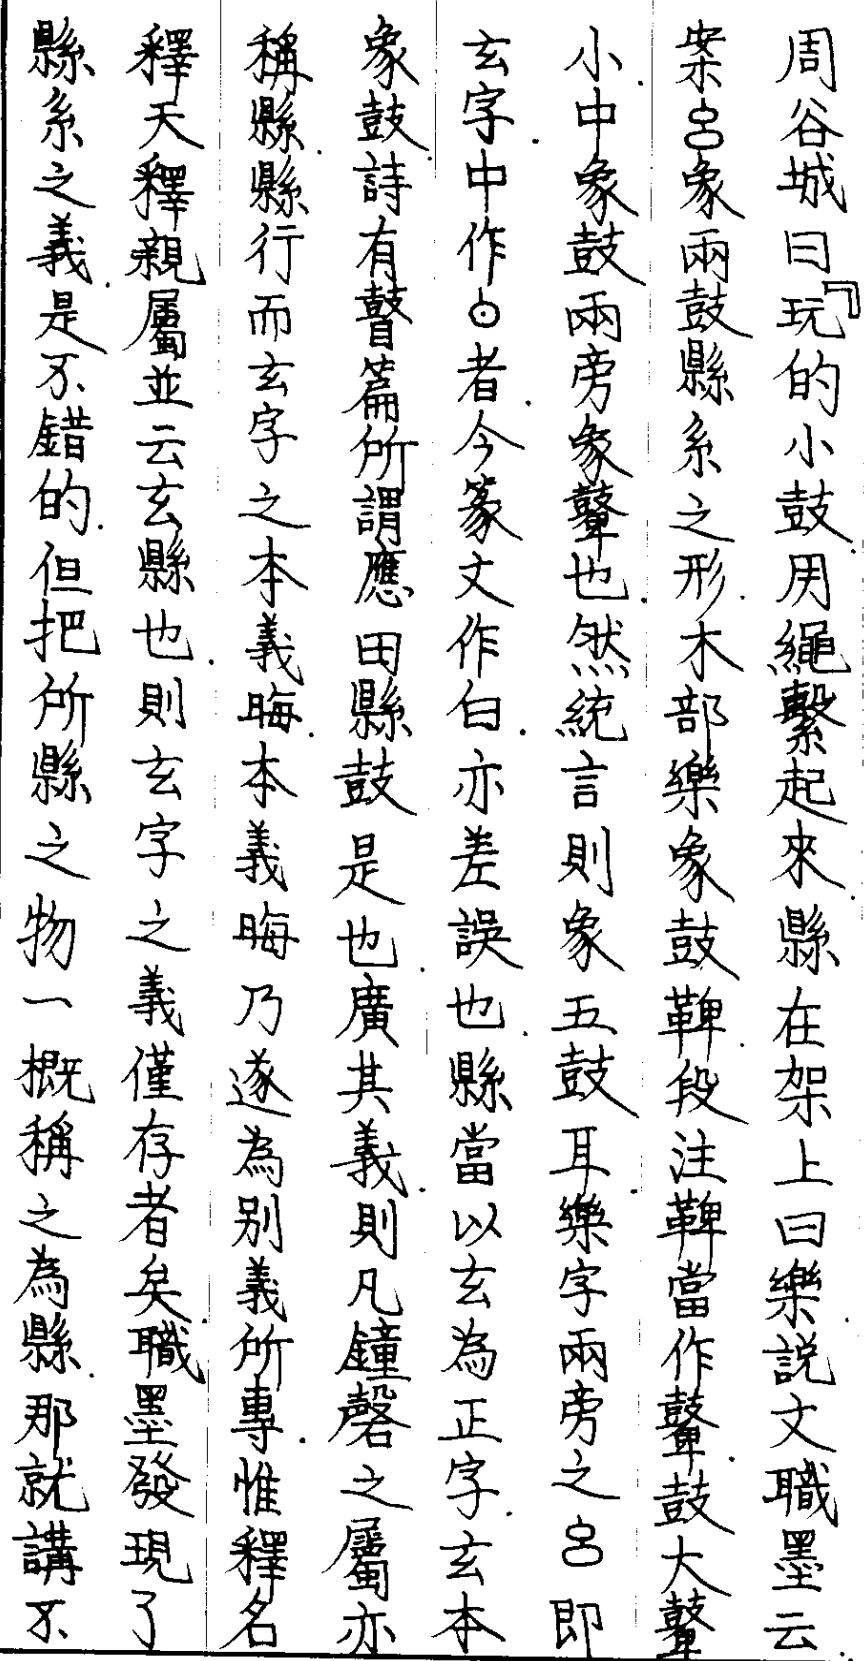 周谷城曰『玩的小鼓用繩繫起來縣在架上曰樂説文職墨云
案呂象兩鼓縣糸之形.木部樂象鼓鞞.段注鞞當作鼙.鼓大鼙
小.中象鼓兩旁象鼙也.然統言則象五鼓耳.樂字兩旁之呂即
玄字.中作⊙者.今篆文作白.亦差誤也.縣當以玄為正字.玄本
象鼓.詩有瞽篇所謂應田縣鼓是也.廣其義.則凡鐘磬之屬亦
稱縣.縣行而玄字之本義晦.本義晦乃遂為别義所專.惟釋名
釋天釋親屬並云玄縣也.則玄字之義僅存者矣.職墨發現了
縣糸之義.是不錯的.但把所縣之物一概稱之為縣.那就講不